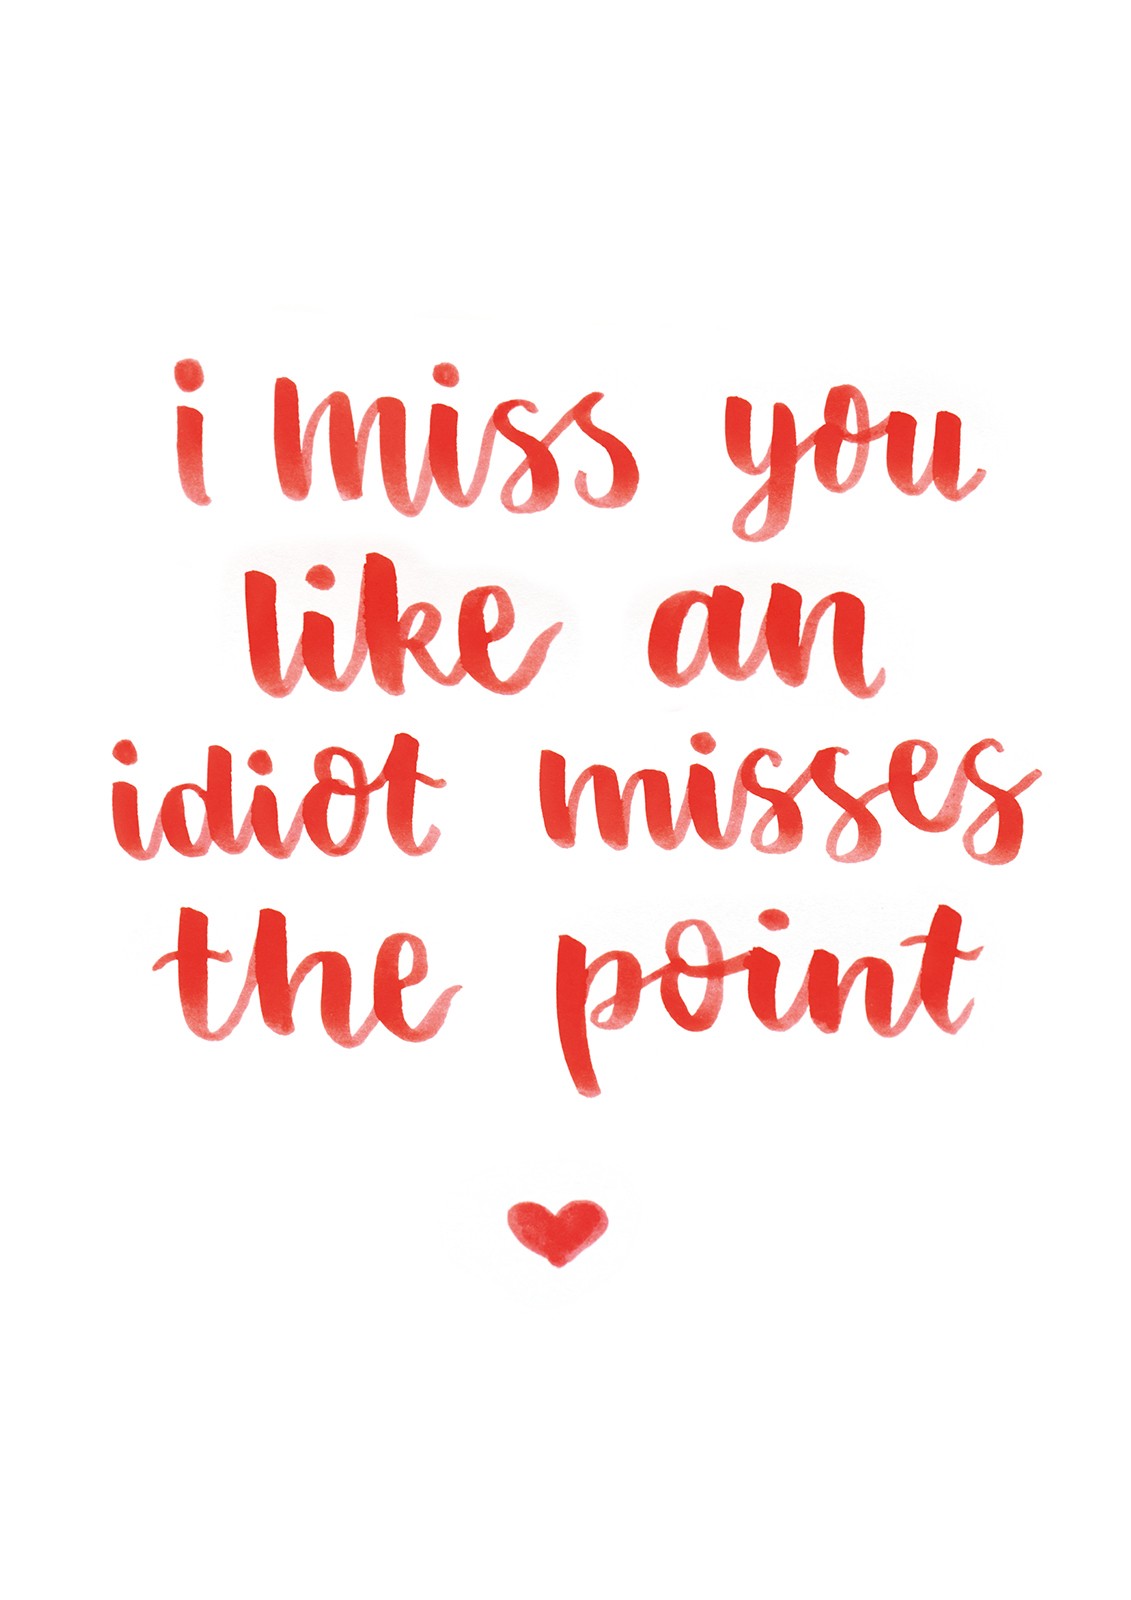 i miss you
like an
idiot misses
the point